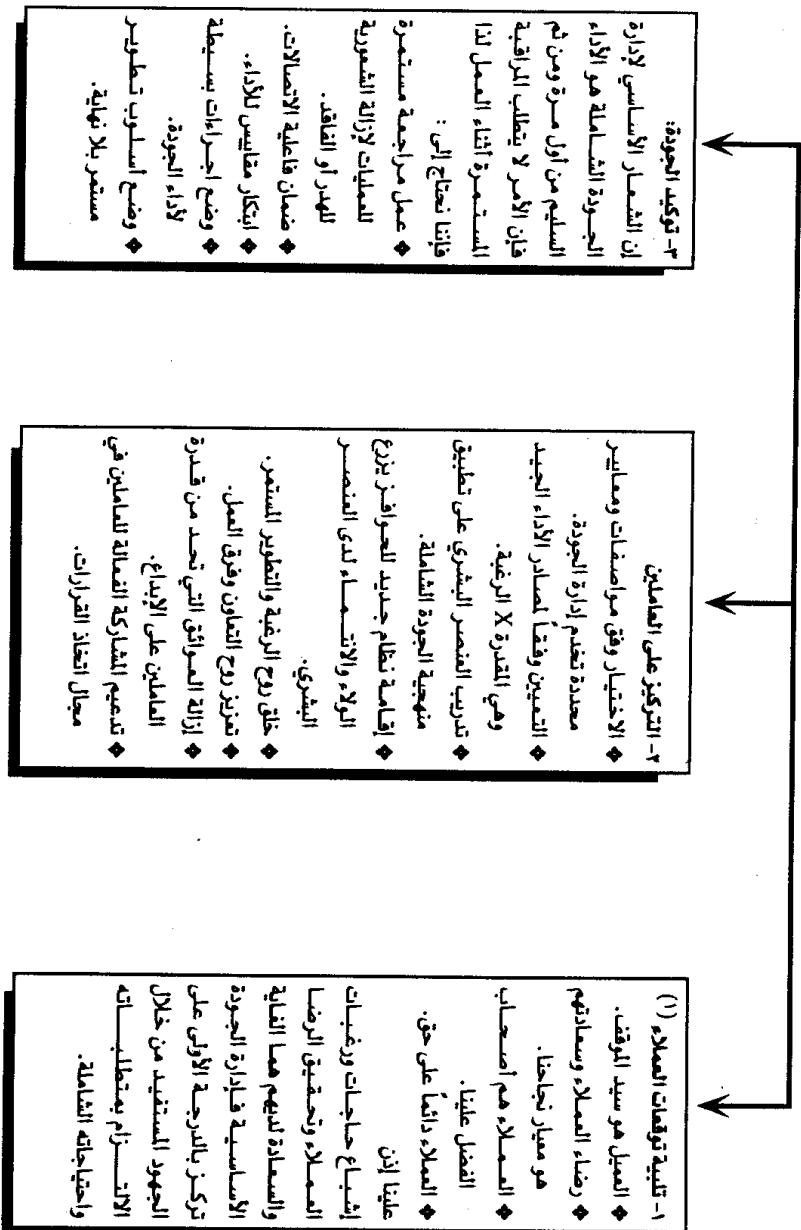 ١- تلبية توقعات العملاء (١)
❖ العميل هو سيد الموقف.
❖ رضاء العملاء وسعادتهم
هو معيار نجاحنا.
❖ العملاء هم أصحاب
الفضل علينا.
❖ العملاء دائماً على حق.
علينا إذن
إشباع حاجات ورغبات
العملاء وتحقيق الرضا
والسعادة لديهم هما الغاية
الأساسية فإدارة الجودة
تركز بالدرجة الأولى على
الجهود المستفيد من خلال
الالتزام بمتطلباته
واحتياجاته الشاملة.
٢- التركيز على العاملين
❖ الاختيار وفق مواصفات ومعايير
محددة تخدم إدارة الجودة.
❖ التعيين وفقاً لمصادر الأداء الجيد
وهي المقدرة X الرغبة.
❖ تدريب العنصر البشري على تطبيق
منهجية الجودة الشاملة.
❖ إقامة نظام جديد للحوافز يزرع
الولاء والانتماء لدى العنصر
البشري.
❖ خلق روح الرغبة والتطوير المستمر.
❖ تعزيز روح التعاون وفرق العمل.
❖ إزالة العوائق التي تحد من قدرة
العاملين على الإبداع.
❖ تدعيم المشاركة الفعالة للعاملين في
مجال اتخاذ القرارات.
٣- توكيد الجودة:
إن الشعار الأساسي لإدارة
الجودة الشاملة هو الأداء
السليم من أول مرة ومن ثم
فإن الأمر لا يتطلب المراقبة
المستمرة أثناء العمل لذا
فإننا نحتاج إلى :
❖ عمل مراجعة مستمرة
للعمليات لإزالة الشعورية
للهدر أو الفاقد.
❖ ضمان فاعلية الاتصالات.
❖ ابتكار مقاييس للأداء.
❖ وضع اجراءات بسيطة
لأداء الجودة.
❖ وضع أسلوب تطوير
مستمر بلا نهاية.